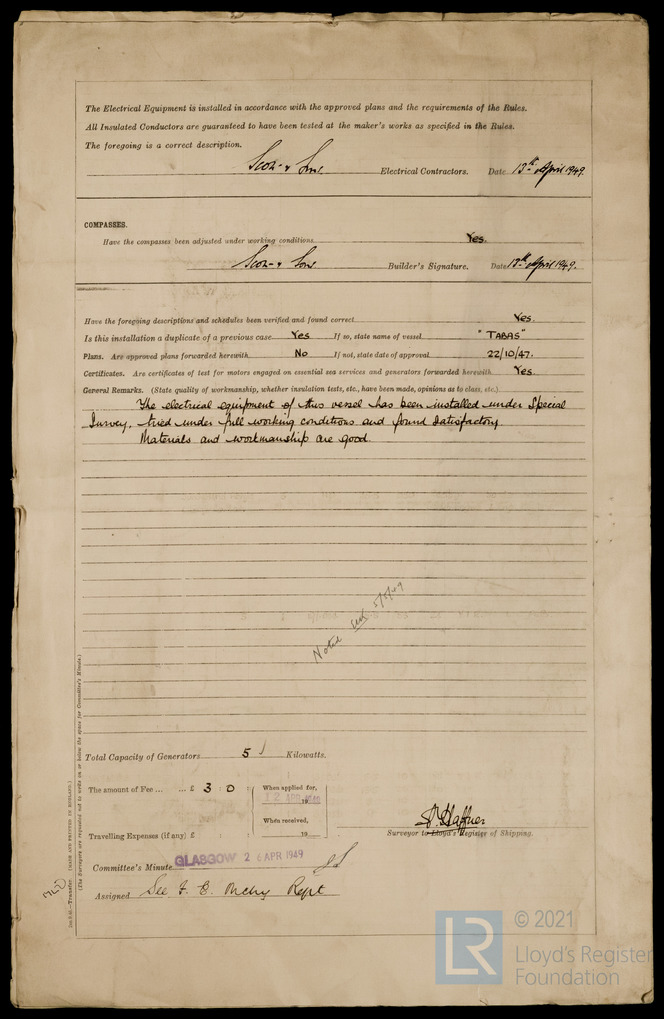 The Electrical Equipment is installed in accordance with the approved plans and the requirements of the Rules.
All Insulated Conductors are guaranteed to have been tested at the maker's works as specified in the Rules.
The foregoing is a correct description.
Electrical Contractors. Date 13th April 1949.
COMPASSES.
Have the compasses been adjusted under working conditions Yes.
Builder's Signature. Date 13th April 1949.
Have the foregoing descriptions and schedules been verified and found correct Yes.
Is this installation a duplicate of a previous case Yes If so, state name of vessel "TABAS"
Plans. Are approved plans forwarded herewith No If not, state date of approval 22/10/47.
Certificates. Are certificates of test for motors engaged on essential sea services and generators forwarded herewith Yes.
General Remarks. (State quality of workmanship, whether insulation tests, etc., have been made, opinions as to class, etc.)
The electrical equipment of this vessel has been installed under Special
Survey, tried under full working conditions and found satisfactory.
Materials and workmanship are good.
Noted 5/5/49
Total Capacity of Generators 5 Kilowatts.
The amount of Fee ... ... £ 3 : 0 : When applied for,
12 APR 19
When received,
Travelling Expenses (if any) £ : : 19
Surveyor to Lloyd's Register of Shipping.
Committee's Minute GLASGOW 26 APR 1949
Assigned See F. E. Mchy Rept
(MADE AND PRINTED IN ENGLAND.)
(The Surveyors are requested not to write on or below the space for Committee's Minute.)
LR
© 2021
Lloyd's Register
Foundation